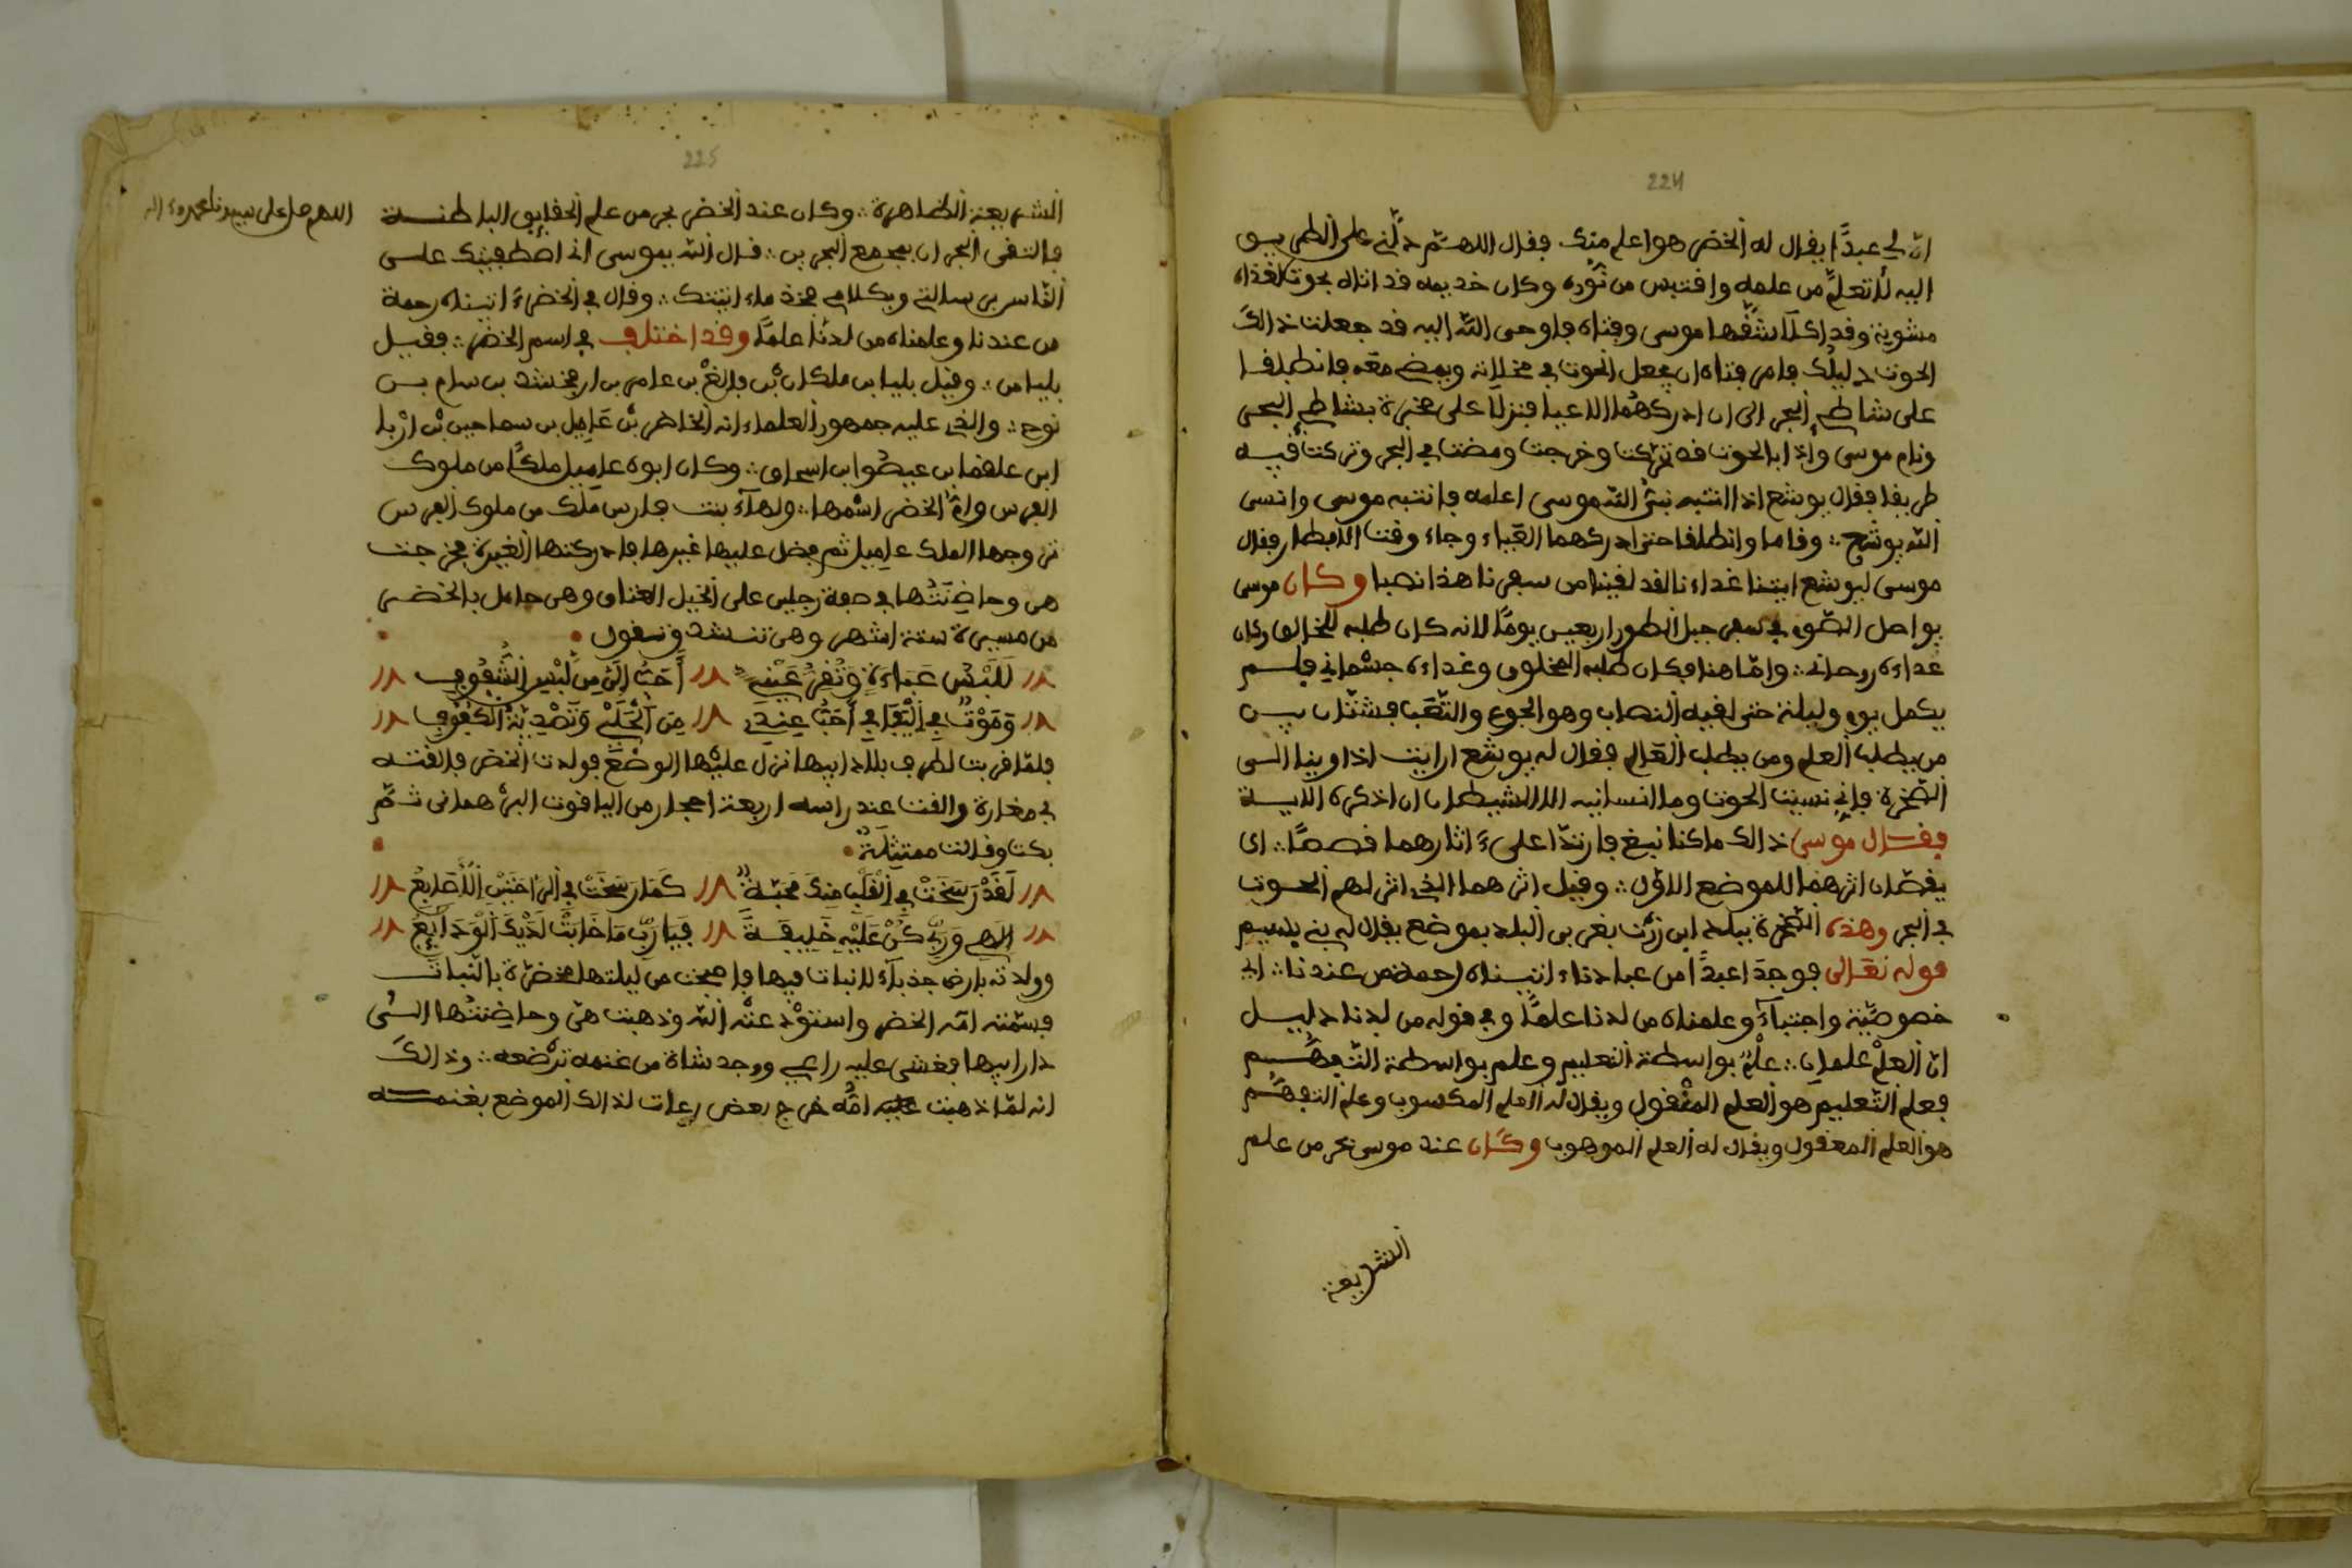 224
ان لي عبدًا يقال له الخضر هو اعلم منك فقال اللهم دلني على الطريق
اليه لأتعلم من علمه واقتبس من نوره وكان خديمه قد اتاه بحوت لغذاه
مشوية وقد اكلا شقها موسى وفتاه فاوحى الله اليه قد جعلت ذالك
الحوت دليلك فامر فتاه ان يجعل الحوت في مخلاته ويمضي معه فانطلقا
على شاطئ البحر الى ان ادركهما الاعيا فنزلا على صخرة بشاطئ البحر
ونام موسى واذا بالحوت قد تحركت وخرجت ومضت في البحر وتركت فيه
طريقا فقال يوشع اذا انتبه نبئ الله موسى اعلمه فانتبه موسى وانسى
الله يوشع ؞ وقاما وانطلقا حتى ادركهما العياء وجاء وقت الافطار فقال
موسى ليوشع ايتنا غداءنا لقد لقينا من سفرنا هذا نصبا وكان موسى
يواصل الصوم في سفر جبل الطور اربعين يومًا لانه كان طلبه للخالق وكان
غداءه روحاني ؞ واما هنا فكان طلبه المخلوق وغداءه جسماني فلم
يكمل يوم وليلة حتى لقيه النصاب وهو الجوع والتعب فشتان بين
من يطلب العلم ومن يطلب العالم فقال له يوشع ارايت اذ اوينا الى
الصخرة فإني نسيت الحوت وما انسانيه الا الشيطان ان اذكره الاية
فقال موسى ذالك ما كنا نبغ فارتدا على ءاثارهما قصصًا ؞ اى
يقصان اثرهما للموضع الاول ؞ وقيل اثرهما الذي اثر لهم الحوت
في البحر وهذه الصخرة ببلد بغربي البلد بموضع يقال له بني
قوله تعالى فوجدا عبدًا من عبادنا ءاتيناه رحمة من عندنا ؞ اي
خصوصية واجتباء وعلمناه من لدنا علمًا وفي قوله من لدنا دليل
ان العلم علمان ؞ علم بواسطة التعليم وعلم بواسطة التفهيم
فعلم التعليم هو العلم المنقول ويقال له العلم المكسوب وعلم التفهم
هو العلم المعقول ويقال له العلم الموهوب وكان عند موسى بحر من علم
الشريعة
225
اللهم صل على سيدنا محمد وءاله
الشريعة الظاهرة ؞ وكان عند الخضر بحر من علم الحقايق الباطنة
فالتقى البحران بمجمع البحرين ؞ قال الله يموسى اني اصطفيتك على
الناس برسالتي وبكلامي فخذ ماء اتيتك ؞ وقال في الخضر ءاتيناه رحمة
من عندنا وعلمناه من لدنا علمًا وقد اختلف في اسم الخضر ؞ فقيل
بلياس ؞ وقيل بليا بن ملكان بن فالغ بن عامر بن ارفخشد بن سام بن
نوح ؞ والذي عليه جمهور العلماء انه الخاضر بن عاميل بن سماحين بن اربا
ابن علقما بن عيصوا بن اسحاق ؞ وكان ابوه عاميل ملكًا من ملوك
الفرس وام الخضر اسمها ؞ ولهاء بنت فارس ملك من ملوك الفرس
تزوجها الملك عاميل ثم فضل عليها غيرها فادركتها الغيرة فخرجت
هى وحاضنتها في صفة رجلين على الخيل العتاق وهى حامل بالخضر
من مسيرة ستة اشهر وهى تنشد وتقول
لَلُبْسُ عَبَاءَةٍ وَتَقَرُّ عَيْنِي أَحَبُّ إِلَيَّ مِن لُّبْسِ الشُّفُوفِ
وَمَوْتٌ فِي الْفَيَافِي أَحَبُّ عِندِي مِنَ وَتَصْدِيَةِ الْكُفُوفِ
فلما قربت لطرف بلاد ابيها نزل عليها الوضع فولدت الخضر فالقته
في مغارة والقت عند راسه اربعة احجار من الياقوت البرهماني ثم
بكت وقالت ممتثلة
لَقَدْ رَسَخَتْ فِي الْقَلْبِ مِنكَ مَحَبَّةٌ كَمَا رَسَخَتْ فِي الرَّاحَتَيْنِ الْأَصَابِعُ
إلهي وَرَبِّي كُنْ عَلَيْهِ خَلِيفَةً فَيَا رَبِّ مَا خَابَتْ لَدَيْكَ الْوَدَائِعُ
وولدته بارض جذباء لا نبات فيها فاصبحت من ليلتها مخضرة بالنبات
فسمته امه الخضر واستودعته الله وذهبت هى وحاضنتها الى
دار ابيها فغشى عليه راعي ووجد شاة من غنمه ترضعه ؞ وذالك
انه لما ذهبت عليه امه خرج بعض رعات لذالك الموضع بغنمه